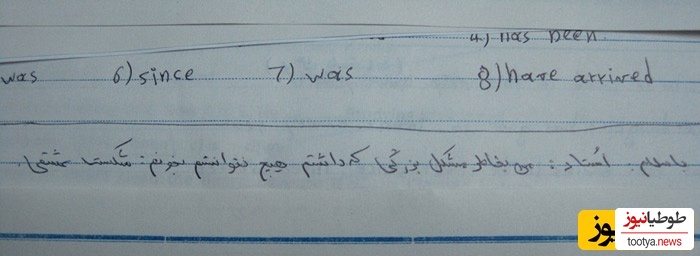 4) has been
was 6) since 7) was 8) have arrived
باسلام. استاد: من بخاطر مشکل بزرگی که داشتم هیچ نتوانستم بخونم: شکست عشقی.
طوطیانیوز
tootya.news
یوز